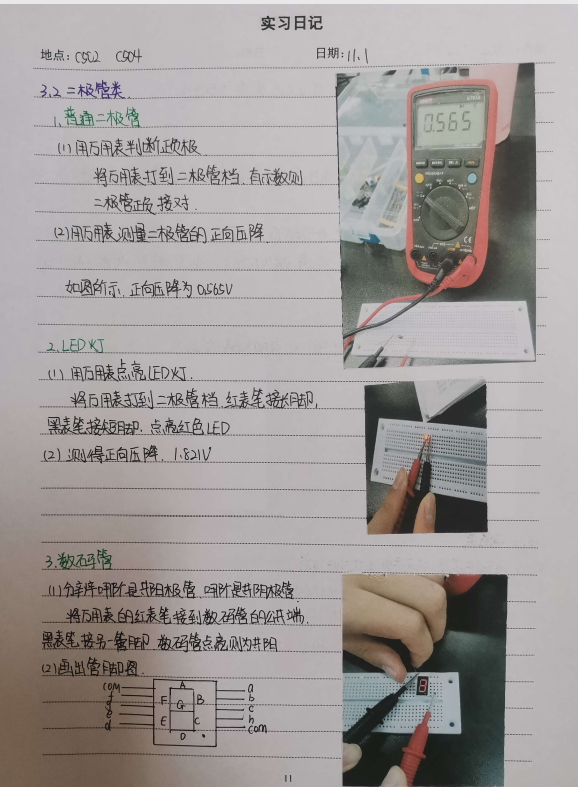 实习日记
地点: C502 C504
日期: 11.1
3.2 二极管类.
1.普通二极管
(1) 用万用表判断正负极
将万用表打到二极管档.有示数则
二极管正负接对.
(2)用万用表测量二极管的正向压降.
如图所示.正向压降为0.565V
0.565
2.LED灯
(1) 用万用表点亮LED灯.
将万用表打到二极管档.红表笔接长脚,
黑表笔接短脚.点亮红色LED
(2) 测得正向压降. 1.821V
3.数码管
(1)分辨哪个是共阳极管.哪个是共阴极管.
将万用表的红表笔接到数码管的公共端.
黑表笔接另一管脚.数码管点亮则为共阳
(2)画出管脚图.
com
f
g
e
d
A
F
B
G
E
C
D
a
b
c
h
com
11